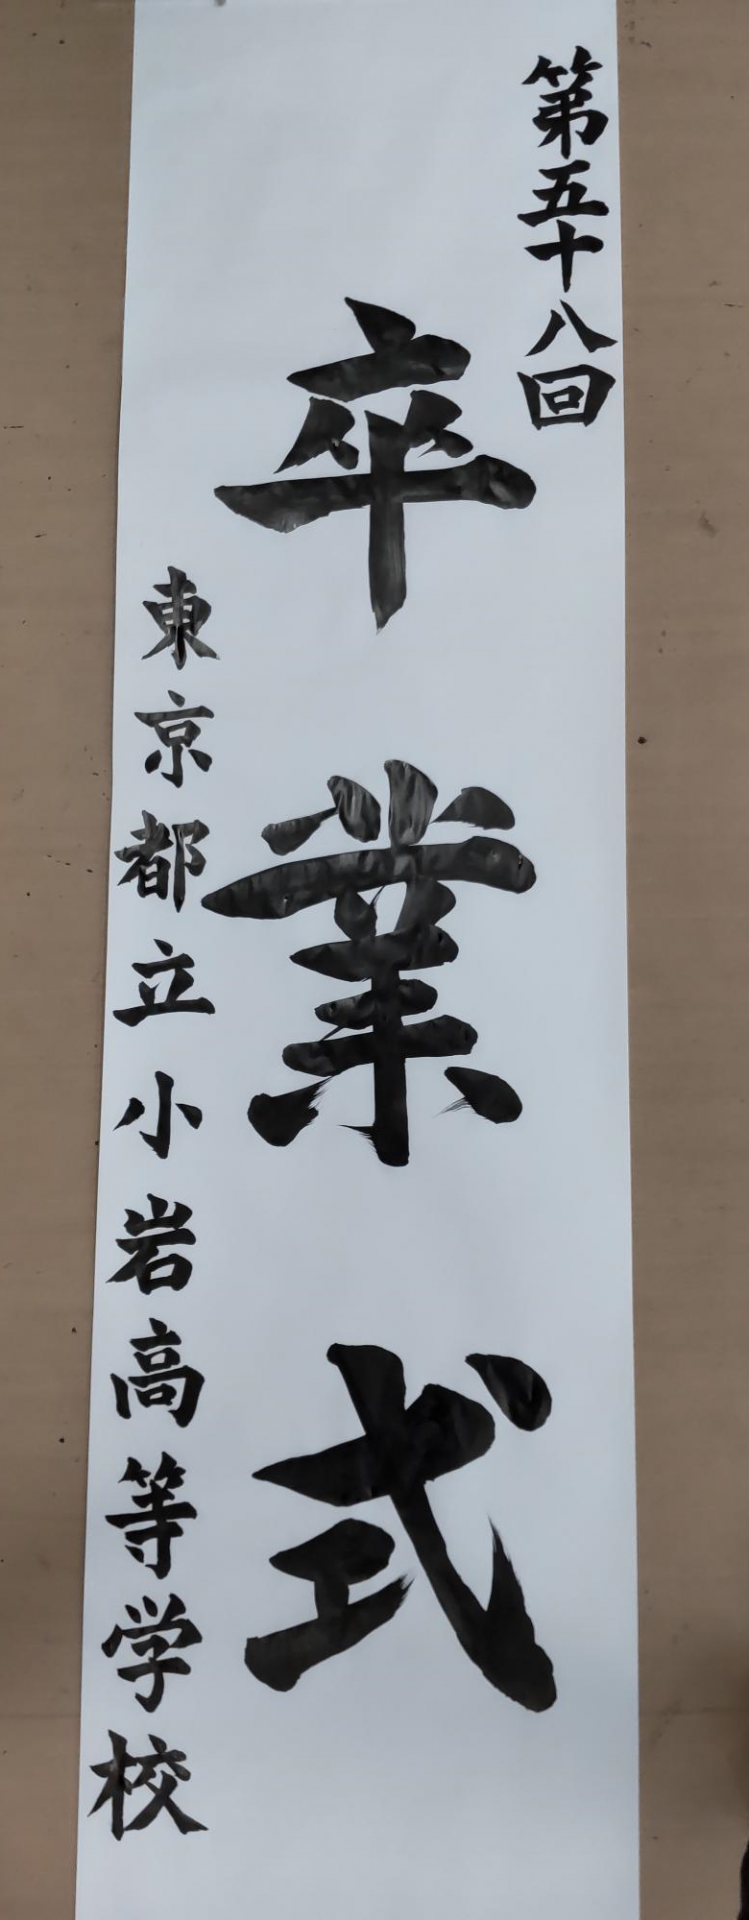 第五十八回
卒業式
東京都立小岩高等学校